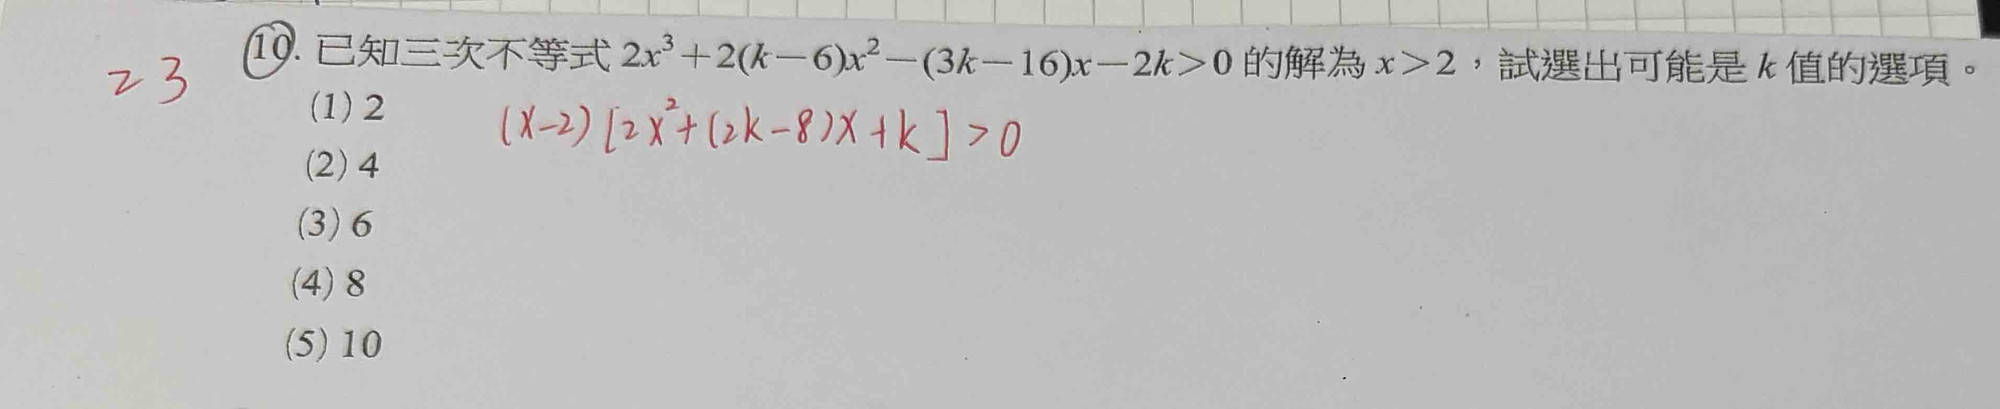 23
⑩. 已知三次不等式 2x³+2(k-6)x²-(3k-16)x-2k>0 的解為 x>2，試選出可能是 k 值的選項。
(1) 2
(x-2)[2x²+(2k-8)x+k]>0
(2) 4
(3) 6
(4) 8
(5) 10